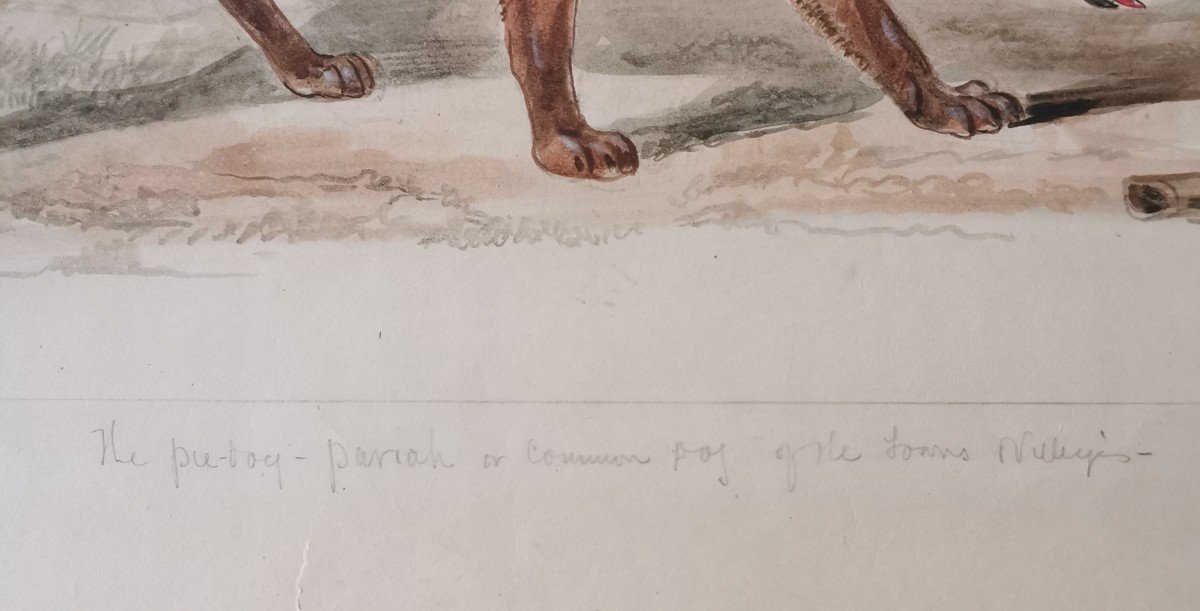 The pie-dog - pariah or common dog of the towns & Villages -